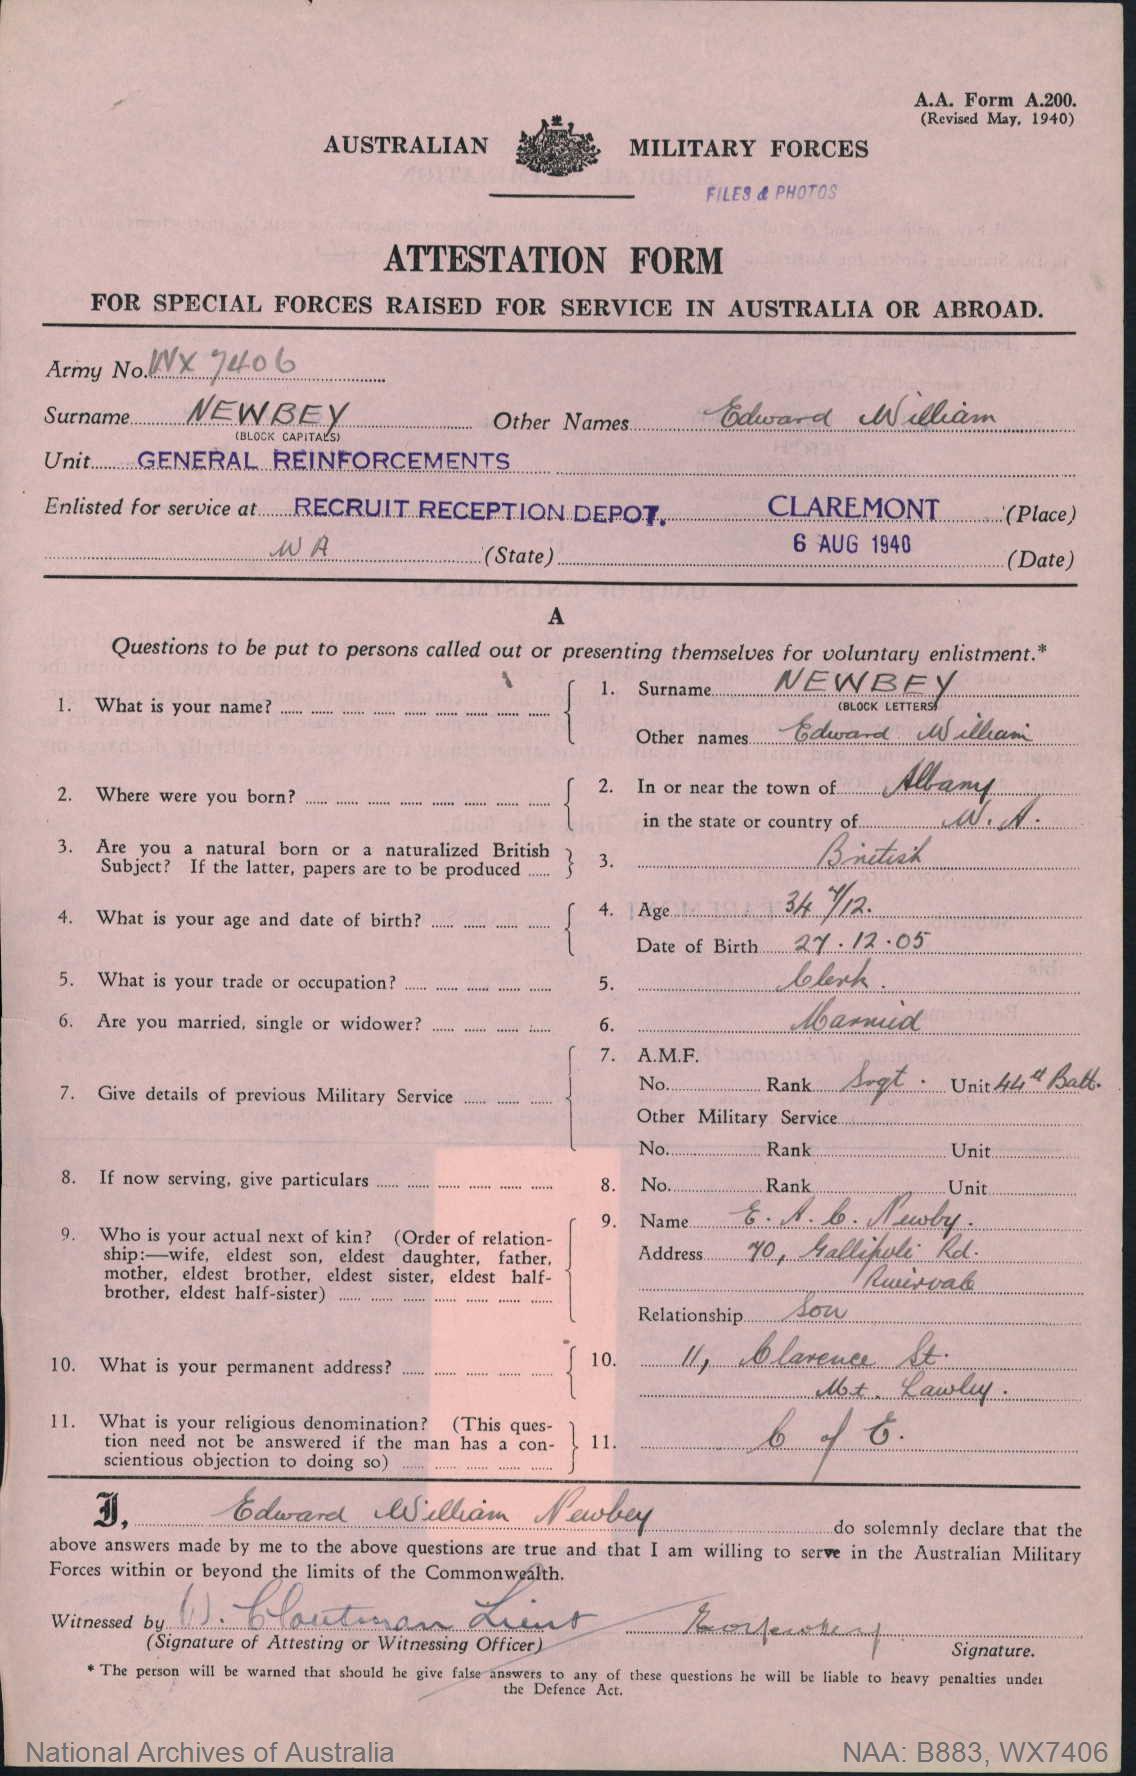 A.A. Form A.200.
(Revised May, 1940)
AUSTRALIAN MILITARY FORCES
FILES & PHOTOS
ATTESTATION FORM
FOR SPECIAL FORCES RAISED FOR SERVICE IN AUSTRALIA OR ABROAD.
Army No. WX 7406
Surname NEWBEY Other Names Edward William
(BLOCK CAPITALS)
Unit GENERAL REINFORCEMENTS
Enlisted for service at RECRUIT RECEPTION DEPOT. CLAREMONT (Place)
W A (State) 6 AUG 1940 (Date)
A
Questions to be put to persons called out or presenting themselves for voluntary enlistment.*
1. What is your name? 1. Surname NEWBEY
(BLOCK LETTERS)
Other names Edward William
2. Where were you born? 2. In or near the town of Albany
in the state or country of W. A.
3. Are you a natural born or a naturalized British
Subject? If the latter, papers are to be produced 3. British
4. What is your age and date of birth? 4. Age 34 7/12.
Date of Birth 27.12.05
5. What is your trade or occupation? 5. Clerk.
6. Are you married, single or widower? 6. Married
7. Give details of previous Military Service 7. A.M.F.
No. Rank Sergt. Unit 44th Batt.
Other Military Service
No. Rank Unit
8. If now serving, give particulars 8. No. Rank Unit
9. Who is your actual next of kin? (Order of relation-
ship:—wife, eldest son, eldest daughter, father,
mother, eldest brother, eldest sister, eldest half-
brother, eldest half-sister) 9. Name E. A. C. Newby.
Address 70, Gallipoli Rd.
Rivervale
Relationship Son
10. What is your permanent address? 10. 11, Clarence St.
Mt. Lawley.
11. What is your religious denomination? (This ques-
tion need not be answered if the man has a con-
scientious objection to doing so) 11. C of E.
I, Edward William Newbey do solemnly declare that the
above answers made by me to the above questions are true and that I am willing to serve in the Australian Military
Forces within or beyond the limits of the Commonwealth.
Witnessed by W. Cloutman Lieut
(Signature of Attesting or Witnessing Officer) Signature.
* The person will be warned that should he give false answers to any of these questions he will be liable to heavy penalties under
the Defence Act.
National Archives of Australia NAA: B883, WX7406